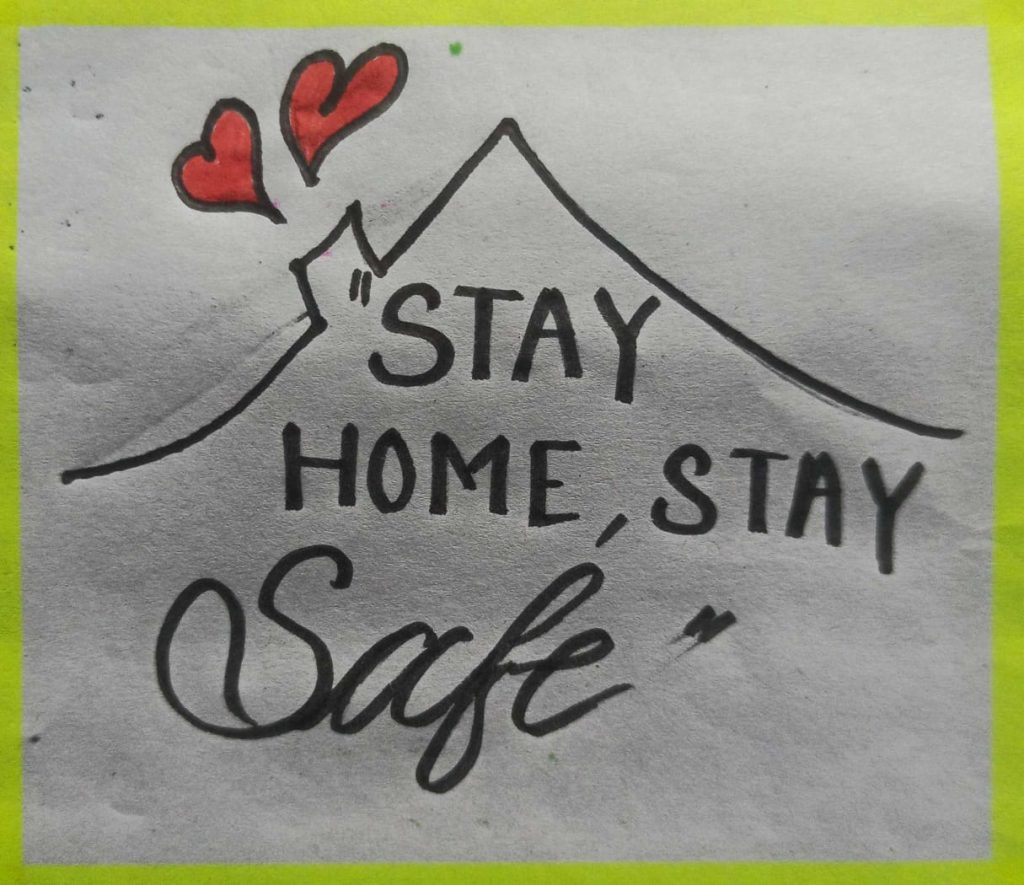 "STAY
HOME, STAY
Safe"